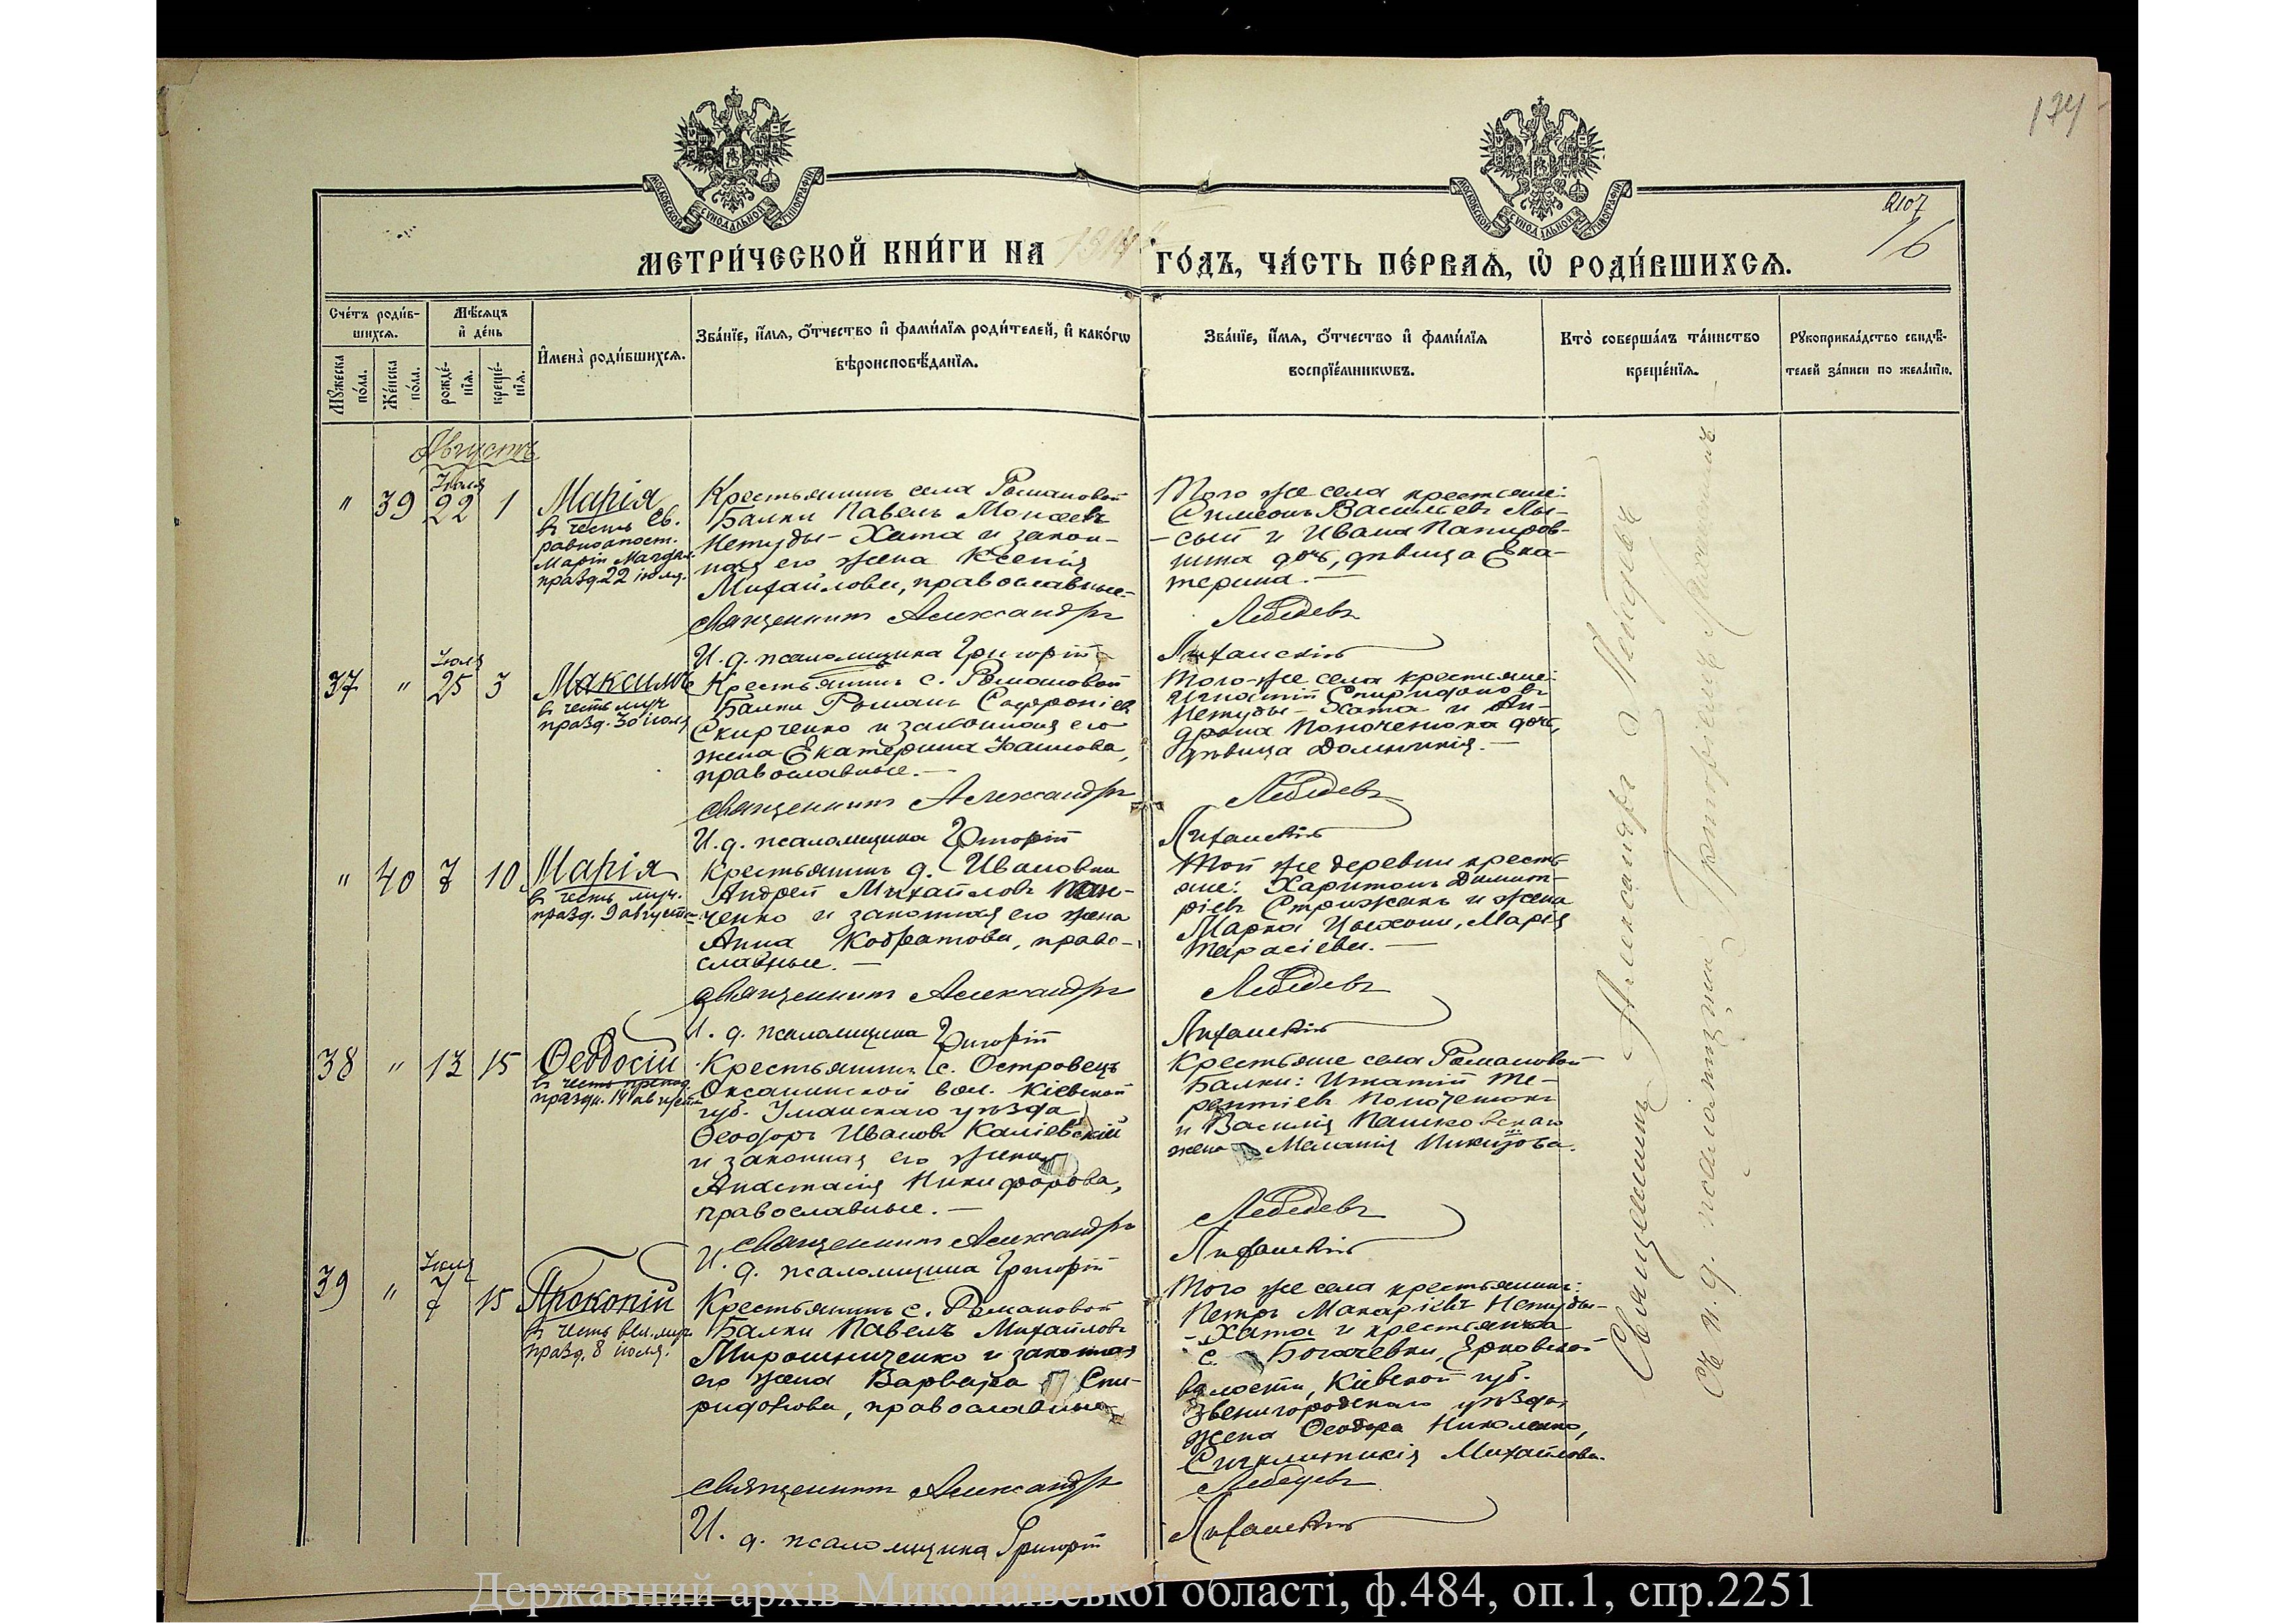 174
2107
16
МОСКОВСКОЙ СУНОДАЛЬНОЙ ТИПОГРАФІИ
МОСКОВСКОЙ СУНОДАЛЬНОЙ ТИПОГРАФІИ
МЕТРИ́ЧЕСКОЙ КНИ́ГИ НА 1914 ГО́ДЪ, ЧА́СТЬ ПЕ́РВАѦ, Ѡ РОДИ́ВШИХСѦ.
Сче́тъ роди́в-
шихсѧ.
Мꙋ́жеска по́ла.
Же́нска по́ла.
Мѣ́сяцъ
и҆ де́нь
рожде́-
нїѧ.
креще́-
нїѧ.
И҆мена̀ роди́вшихсѧ.
Зва́нїе, и҆́мѧ, ѻ҆́тчество и҆ фами́лїѧ роди́телей, и҆ како́гѡ
вѣроисповѣ́данїѧ.
Зва́нїе, и҆́мѧ, ѻ҆́тчество и҆ фами́лїѧ
воспрїе́мникѡвъ.
Кто̀ соверша́лъ та́инство
креще́нїѧ.
Рꙋкоприкла́дство свидѣ́-
телей за́писи по жела́нїю.
Августъ
" 39 Іюля 22 1 Марія
въ честь св.
равноапост.
Маріи Магдал.
празд. 22 іюля.
Крестьянинъ села Романовой
Балки Павелъ
Нетуды-Хата и закон-
ная его жена Ксенія
Михайлова, православные.
Священникъ Александръ
И. д. псаломщика Григорій
Того же села крестьяне:
Симеонъ Васильевъ Лы-
-сый и Ивана Папиров-
дочь, дѣвица Ека-
терина.—
Лебедевъ
Лифанскій
37 " Іюля 25 3 Максимъ
въ честь муч.
празд. 30 іюля
Крестьянинъ с. Романовой
Балки Романъ Софроніевъ
Скирченко и законная его
жена Екатерина Іоаннова,
православные.—
Священникъ Александръ
И. д. псаломщика Григорій
Того-же села крестьяне:
Игнатій Спиридоновъ
Нетуды-Хата и Ан-
дрона дочь,
дѣвица Домникія.—
Лебедевъ
Лифанскій
" 40 7 10 Марія
въ честь муч.
празд. 9 августа
Крестьянинъ д. Ивановки
Андрей Михайловъ Пан-
ченко и законная его жена
Анна Кодратова, право-
славные.—
Священникъ Александръ
И. д. псаломщика Григорій
Той же деревни кресть-
яне: Харитонъ Димит-
ріевъ Стрижакъ и жена
Марка Марія
Тарасіева.—
Лебедевъ
Лифанскій
38 " 13 15 Ѳеодосій
въ честь препод.
праздн. 14 августа
Крестьянинъ с. Островецъ
Оксанинской вол. Кіевской
губ. Уманскаго уѣзда
Ѳеодоръ Ивановъ Каліевскій
и законная его жена
Анастасія Никифорова,
православные.—
Священникъ Александръ
И. д. псаломщика Григорій
Крестьяне села Романовой
Балки: Игнатій Те-
рентіевъ
и Василія Пашковскаго
жена Меланія
Лебедевъ
Лифанскій
39 " Іюля 7 15 Прокопій
въ честь вел. муч.
празд. 8 іюля.
Крестьянинъ с. Романовой
Балки Павелъ Михайловъ
Мирошниченко и законная
его жена Варвара Спи-
ридонова, православные
Священникъ Александръ
И. д. псаломщика Григорій
Того же села крестьянинъ:
Петръ Макаріевъ Нетуды-
-Хата и крестьянка
с. Богачевки, Ерковской
волости, Кіевской губ.
Звенигородскаго уѣзда,
жена Ѳеодора Николенко,
Сигклитикія Михайлова.
Лебедевъ
Лифанскій
Священникъ Александръ Лебедевъ
Съ и. д. псаломщика Григоріемъ Лифанскимъ
Державний архів Миколаївської області, ф.484, оп.1, спр.2251